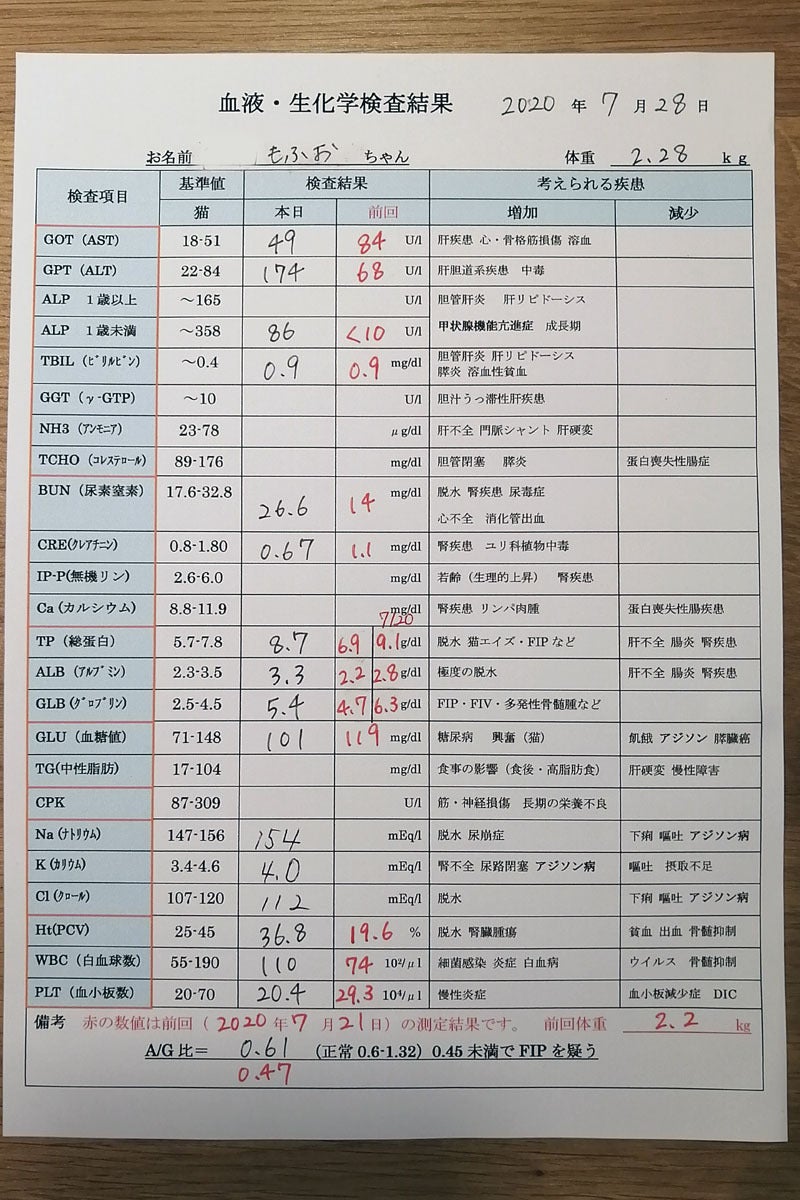 血液・生化学検査結果 2020 年 7 月 28 日
お名前 もふお ちゃん 体重 2.28 kg
検査項目 基準値 検査結果 考えられる疾患
猫 本日 前回 増加 減少
GOT (AST) 18-51 49 84 U/l 肝疾患 心・骨格筋損傷 溶血
GPT (ALT) 22-84 174 68 U/l 肝胆道系疾患 中毒
ALP 1歳以上 ～165 U/l 胆管肝炎 肝リピドーシス
ALP 1歳未満 ～358 86 <10 U/l 甲状腺機能亢進症 成長期
TBIL (ﾋﾞﾘﾙﾋﾞﾝ) ～0.4 0.9 0.9 mg/dl 胆管肝炎 肝リピドーシス
膵炎 溶血性貧血
GGT (γ-GTP) ～10 U/l 胆汁うっ滞性肝疾患
NH3 (ｱﾝﾓﾆｱ) 23-78 μg/dl 肝不全 門脈シャント 肝硬変
TCHO (ｺﾚｽﾃﾛｰﾙ) 89-176 mg/dl 胆管閉塞 膵炎 蛋白喪失性腸症
BUN (尿素窒素) 17.6-32.8 26.6 14 mg/dl 脱水 腎疾患 尿毒症
心不全 消化管出血
CRE(ｸﾚｱﾁﾆﾝ) 0.8-1.80 0.67 1.1 mg/dl 腎疾患 ユリ科植物中毒
IP-P(無機リン) 2.6-6.0 mg/dl 若齢（生理的上昇） 腎疾患
Ca (カルシウム) 8.8-11.9 mg/dl 腎疾患 リンパ肉腫 蛋白喪失性腸疾患
7/20
TP (総蛋白) 5.7-7.8 8.7 6.9 9.1 g/dl 脱水 猫エイズ・FIPなど 肝不全 腸炎 腎疾患
ALB (ｱﾙﾌﾞﾐﾝ) 2.3-3.5 3.3 2.2 2.8 g/dl 極度の脱水 肝不全 腸炎 腎疾患
GLB (ｸﾞﾛﾌﾞﾘﾝ) 2.5-4.5 5.4 4.7 6.3 g/dl FIP・FIV・多発性骨髄腫など
GLU (血糖値) 71-148 101 119 mg/dl 糖尿病 興奮（猫） 飢餓 アジソン 膵臓癌
TG(中性脂肪) 17-104 mg/dl 食事の影響（食後・高脂肪食） 肝硬変 慢性障害
CPK 87-309 U/l 筋・神経損傷 長期の栄養不良
Na (ﾅﾄﾘｳﾑ) 147-156 154 mEq/l 脱水 尿崩症 下痢 嘔吐 アジソン病
K (ｶﾘｳﾑ) 3.4-4.6 4.0 mEq/l 腎不全 尿路閉塞 アジソン病 嘔吐 摂取不足
Cl (ｸﾛｰﾙ) 107-120 112 mEq/l 脱水 下痢 嘔吐 アジソン病
Ht(PCV) 25-45 36.8 19.6 % 脱水 腎臓腫瘍 貧血 出血 骨髄抑制
WBC (白血球数) 55-190 110 74 10²/μl 細菌感染 炎症 白血病 ウイルス 骨髄抑制
PLT (血小板数) 20-70 20.4 29.3 10⁴/μl 慢性炎症 血小板減少症 DIC
備考 赤の数値は前回（2020年7月21日）の測定結果です。 前回体重 2.2 kg
A/G比＝ 0.61 (正常 0.6-1.32) 0.45 未満で FIP を疑う
0.47